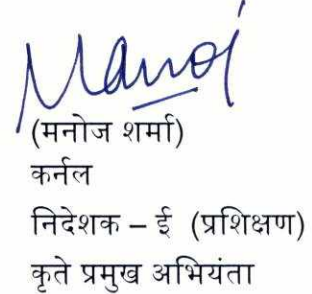 Manoj
(मनोज शर्मा)
कर्नल
निदेशक – ई (प्रशिक्षण)
कृते प्रमुख अभियंता